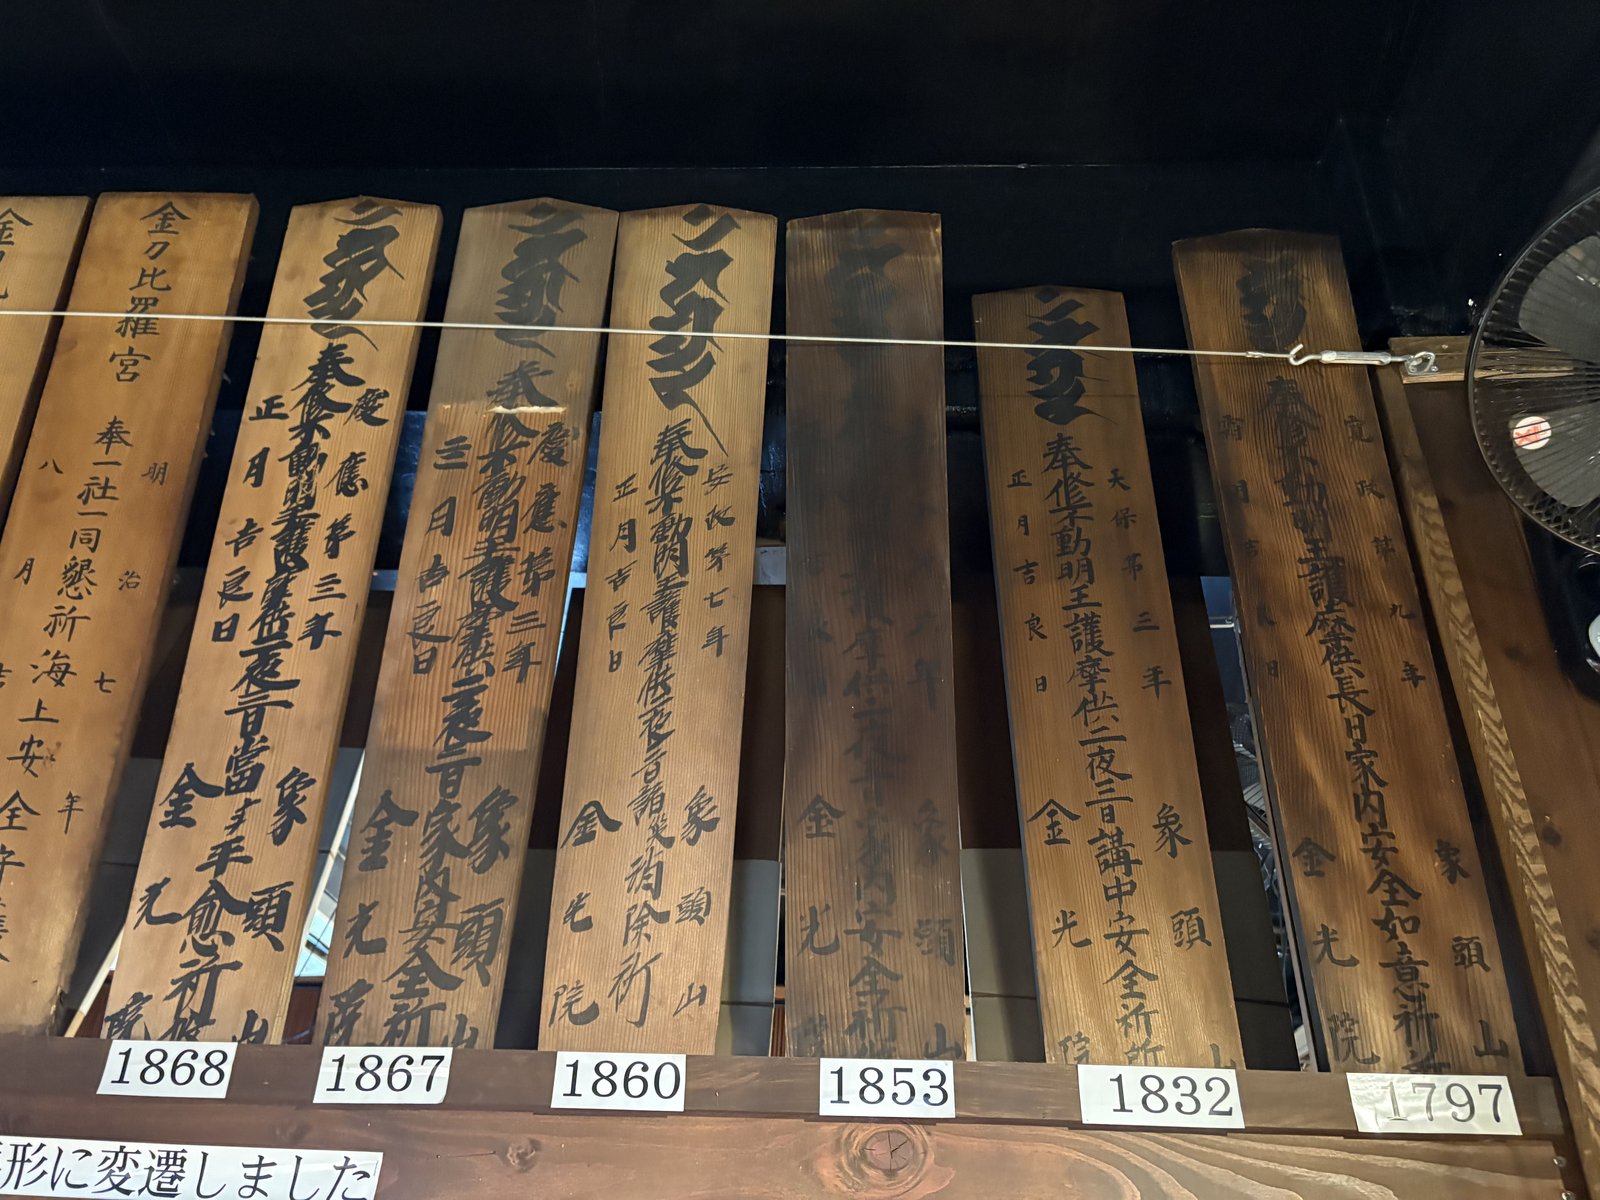 寛政第九年
象頭山
奉修不動明王護摩供長日家内安全如意祈
月吉良日
金光院
天保第三年
象頭山
奉修不動明王護摩供二夜三日講中安全祈所
正月吉良日
金光院
年
象頭山
護摩供二夜三日家内安全祈
金光院
安政第七年
象頭山
奉修不動明王護摩供二夜三日諸災消除祈
正月吉良日
金光院
慶應第三年
象頭山
奉修不動明王護摩供二夜三日家内安全祈
三月吉良日
金光院
慶應第三年
象頭山
奉修不動明王護摩供二夜三日當平愈祈
正月吉良日
金光院
金刀比羅宮
明治七年
奉一社一同懇祈海上安全守
八月吉
金刀
1868
1867
1860
1853
1832
1797
形に変遷しました